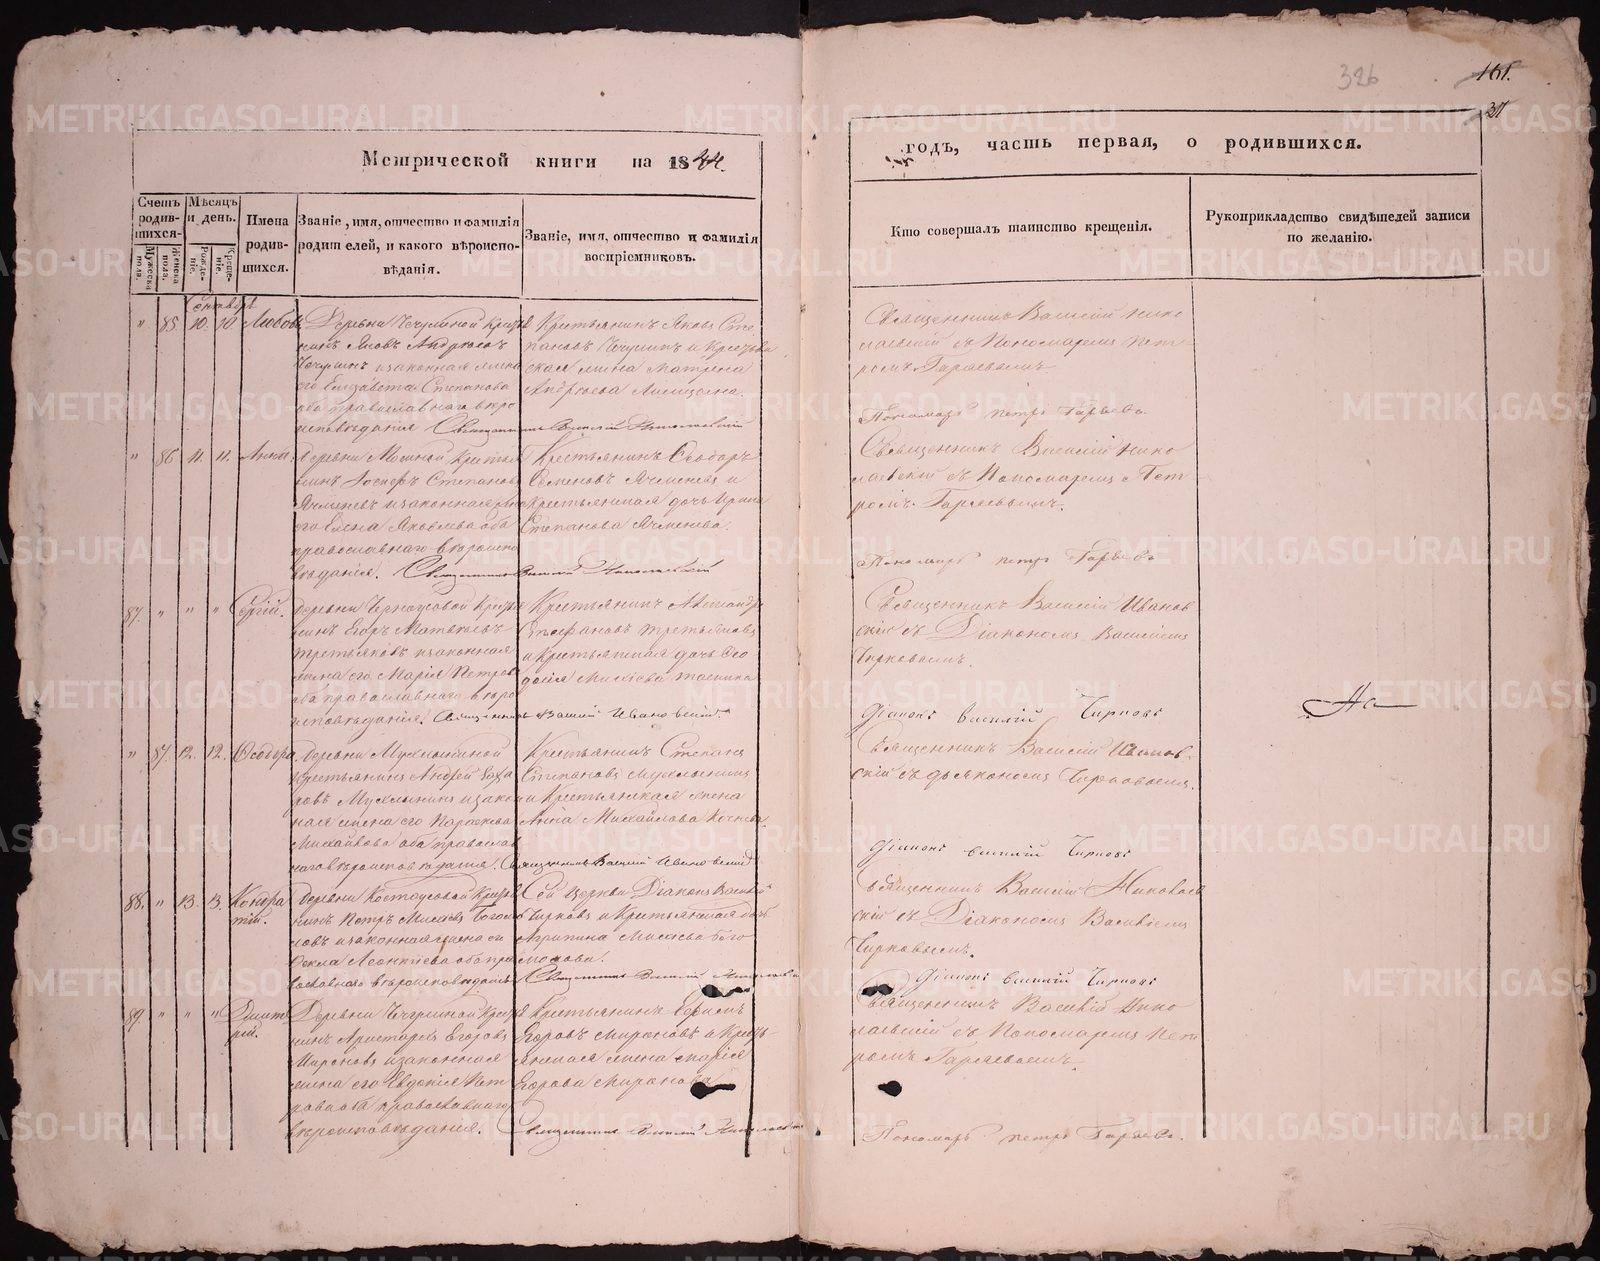 326
161.
Метрической книги на 1844.
годъ, часть первая, о родившихся.
Счетъ родив-шихся.
Мужеска пола.
Женска пола.
Мѣсяцъ и день.
Рожде-ніе.
Креще-ніе.
Имена родив-шихся.
Званіе, имя, отчество и фамилія
родителей, и какого вѣроиспо-
вѣданія.
Званіе, имя, отчество и фамилія
воспріемниковъ.
Кто совершалъ таинство крещенія.
Рукоприкладство свидѣтелей записи
по желанію.
Сентябрь
" 85 10. 10. Любовь
Крестьянинъ Яковъ Сте
пановъ Чечулинъ и Крестьян
ская жена Матрена
Андреева
Елизавета Степанова
оба православнаго вѣро
исповѣданія Священникъ Василій Николаевскій
Священникъ Василій Нико
лаевскій съ Пономаремъ Пет
ромъ Гаряевымъ
Пономарь Петръ Гаряевъ
" 86 11. 11. Анна
Деревни
Степановъ
Ячменевъ и законная жена
его Елена Яковлева оба
православнаго вѣроиспо
вѣданія. Священникъ Василій Николаевскій
Крестьянинъ Ѳеодоръ
Семеновъ Ячменевъ и
крестьянская дочь Ирина
Степанова Ячменева.
Священникъ Василій Нико
лаевскій съ Пономаремъ Пет
ромъ Гаряевымъ.
Пономарь Петръ Гаряевъ
87. " " " Сергій.
Деревни Черноусовой Кресть
нинъ Егоръ Матвѣевъ
Третьяковъ и законная
жена его Марія Петрова
оба православнаго вѣро
исповѣданія. Священникъ Василій Ивановскій
Крестьянинъ Александръ
Стефановъ Третьяковъ
и Крестьянская дочь Ѳео
досія
Священникъ Василій Иванов
скій съ Діакономъ Василіемъ
Чирковымъ.
Діаконъ Василій Чирковъ
" 87. 12. 12. Ѳеодора
Деревни Мухлыниной
Крестьянинъ Андрей Заха
ровъ Мухлынинъ и закон
ная жена его Параскева
Михайлова оба православ
наго вѣроисповѣданія. Священникъ Василій Ивановскій
Крестьянинъ Степанъ
Степановъ Мухлынинъ
и Крестьянская жена
Анна Михайлова
Священникъ Василій Иванов
скій съ дьякономъ Чирковымъ.
Діаконъ Василій Чирковъ
88. " 13. 13. Кондра
тій.
Деревни Костоусовой Кресть
нинъ Петръ Богомо
ловъ и законная жена его
Ѳекла Леонтіева оба пра
вославнаго вѣроисповѣданія
Сей Церкви Діаконъ Василій
Чирковъ и Крестьянская дочь
Агрипина Бого
молова.
Священникъ Василій Николаевскій
Священникъ Василій Николаев
скій съ Діакономъ Василіемъ
Чирковымъ.
Діаконъ Василій Чирковъ
89. " " " Димит
рій.
Деревни Кресть
нинъ Аристархъ Егоровъ
Мироновъ и законная
жена его Евдокія Пет
рова оба православнаго
вѣроисповѣданія.
Крестьянинъ
Егоровъ Мироновъ и Кресть
янская жена Марія
Егорова Миронова
Священникъ Василій Николаевскій
Священникъ Василій Нико
лаевскій съ Пономаремъ Пет
ромъ Гаряевымъ.
Пономарь Петръ Гаряевъ.
METRIKI.GASO-URAL.RU